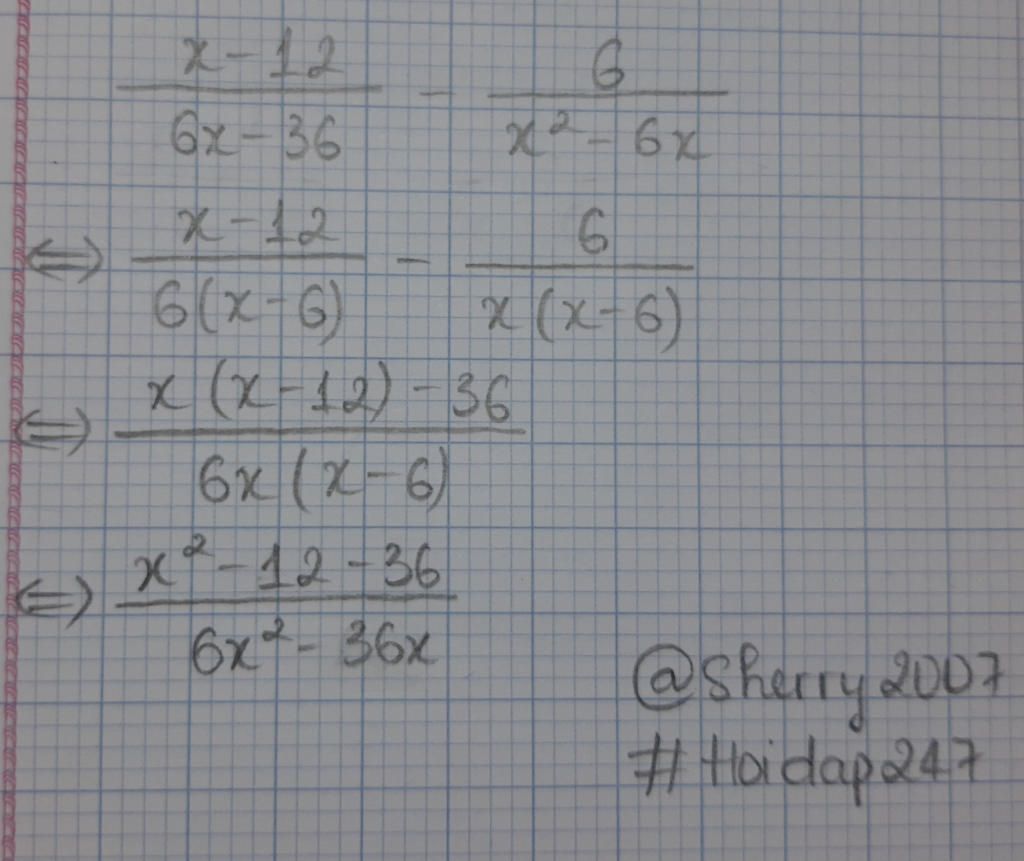 x - 12 / 6x - 36 - 6 / x² - 6x
⇔ x - 12 / 6(x - 6) - 6 / x(x - 6)
⇔ x(x - 12) - 36 / 6x(x - 6)
⇔ x² - 12 - 36 / 6x² - 36x
@Sherry2007
#Hoidap247